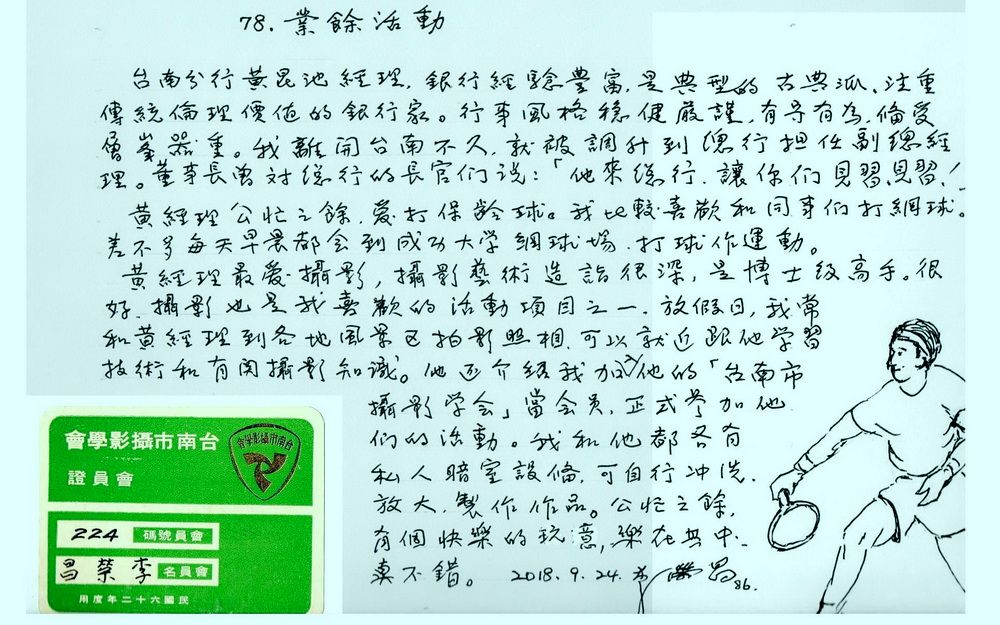 78. 業餘活動
台南分行黃昆池經理，銀行經驗豐富，是典型的古典派、注重
傳統倫理價值的銀行家。行事風格穩健嚴謹，有守有為，備受
層峯器重。我離開台南不久，就被調升到總行担任副總經
理。董事長曾対總行的長官们說：「他來總行、讓你们見習見習！
黃經理公忙之餘，愛打保齡球。我比較喜歡和同事們打網球。
差不多每天早晨都会到成功大学網球場、打球作運動。
黃經理最爱攝影，攝影藝術造詣很深，是博士级高手。很
好，攝影也是我喜歡的活動項目之一。放假日，我常
和黃經理到各地風景区拍影照相，可以就近跟他学習
技術和有関攝影知識。他还介紹我加入他的「台南市
攝影学会」當会員，正式參加他
们的活動。我和他都各有
私人暗室設備，可自行冲洗、
放大、製作作品。公忙之餘，
有個快樂的玩意，樂在其中、
真不錯。 2018.9.24.
86.
會學影攝市南台
會學影攝市南台
證員會
224 碼號員會
昌榮李 名員會
用度年二十六國民